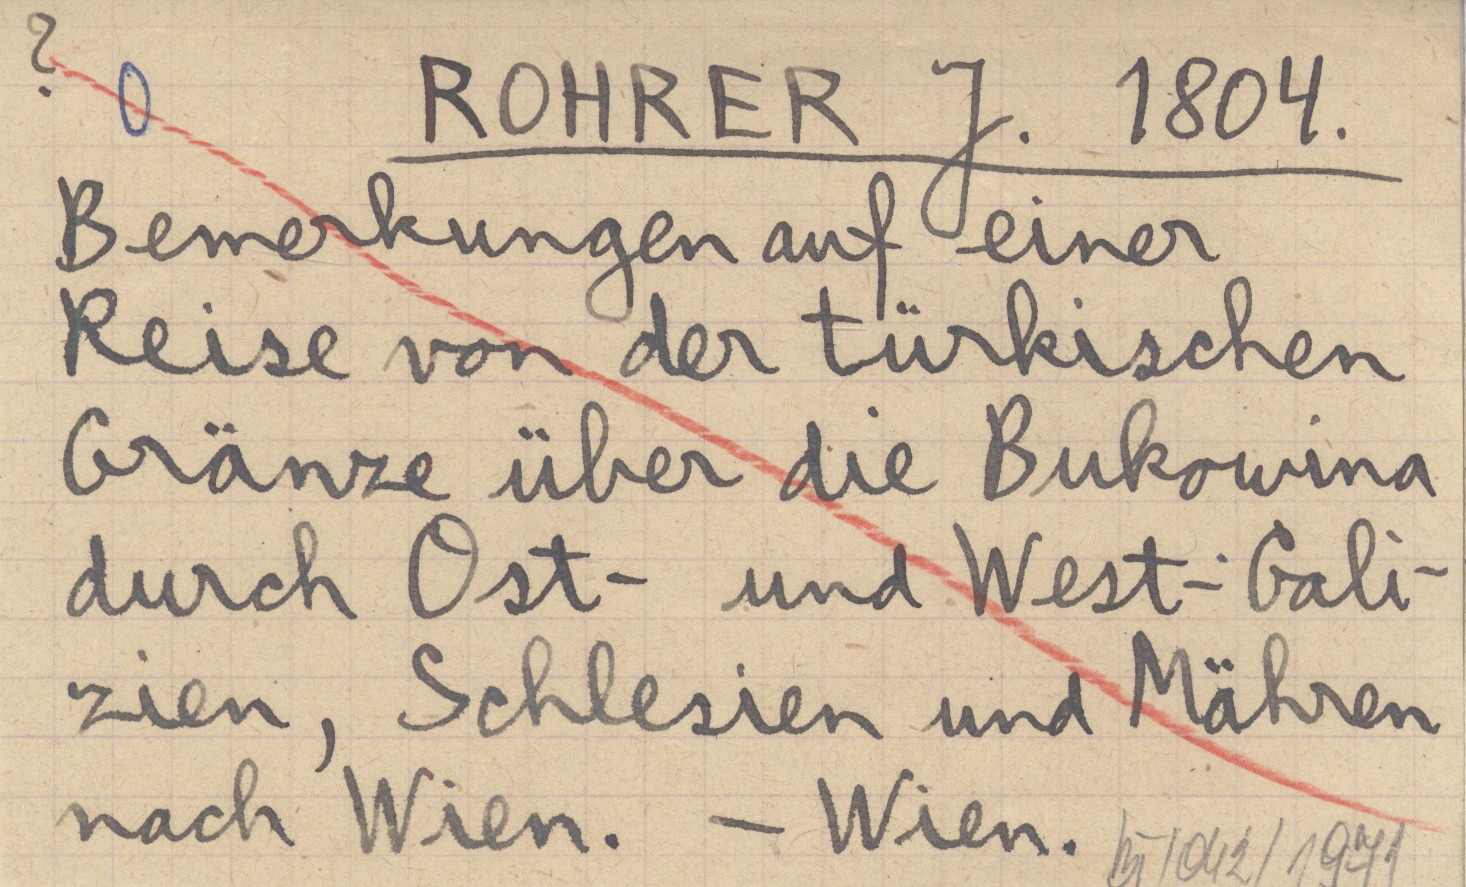 ?
0 ROHRER J. 1804.
Bemerkungen auf einer
Reise von der türkischen
Gränze über die Bukowina
durch Ost- und West-Gali-
zien, Schlesien und Mähren
nach Wien. – Wien.
/042/1971